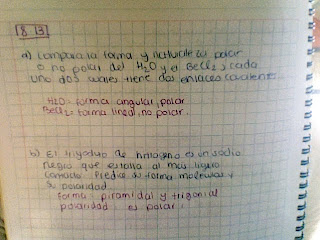 8.13
a) Compara la forma y naturaleza polar
o no polar del H2O y el BeCl2 si cada
uno dos cuales tiene dos enlaces covalente
H2O = forma angular, polar
BeCl2 = forma lineal, no polar.
b) El triyoduro de nitrogeno es un solido
negro que estalla al mas ligero
contacto. Predice su forma molecular y
su polaridad.
Forma = piramidal y trigonial
polaridad = es polar.